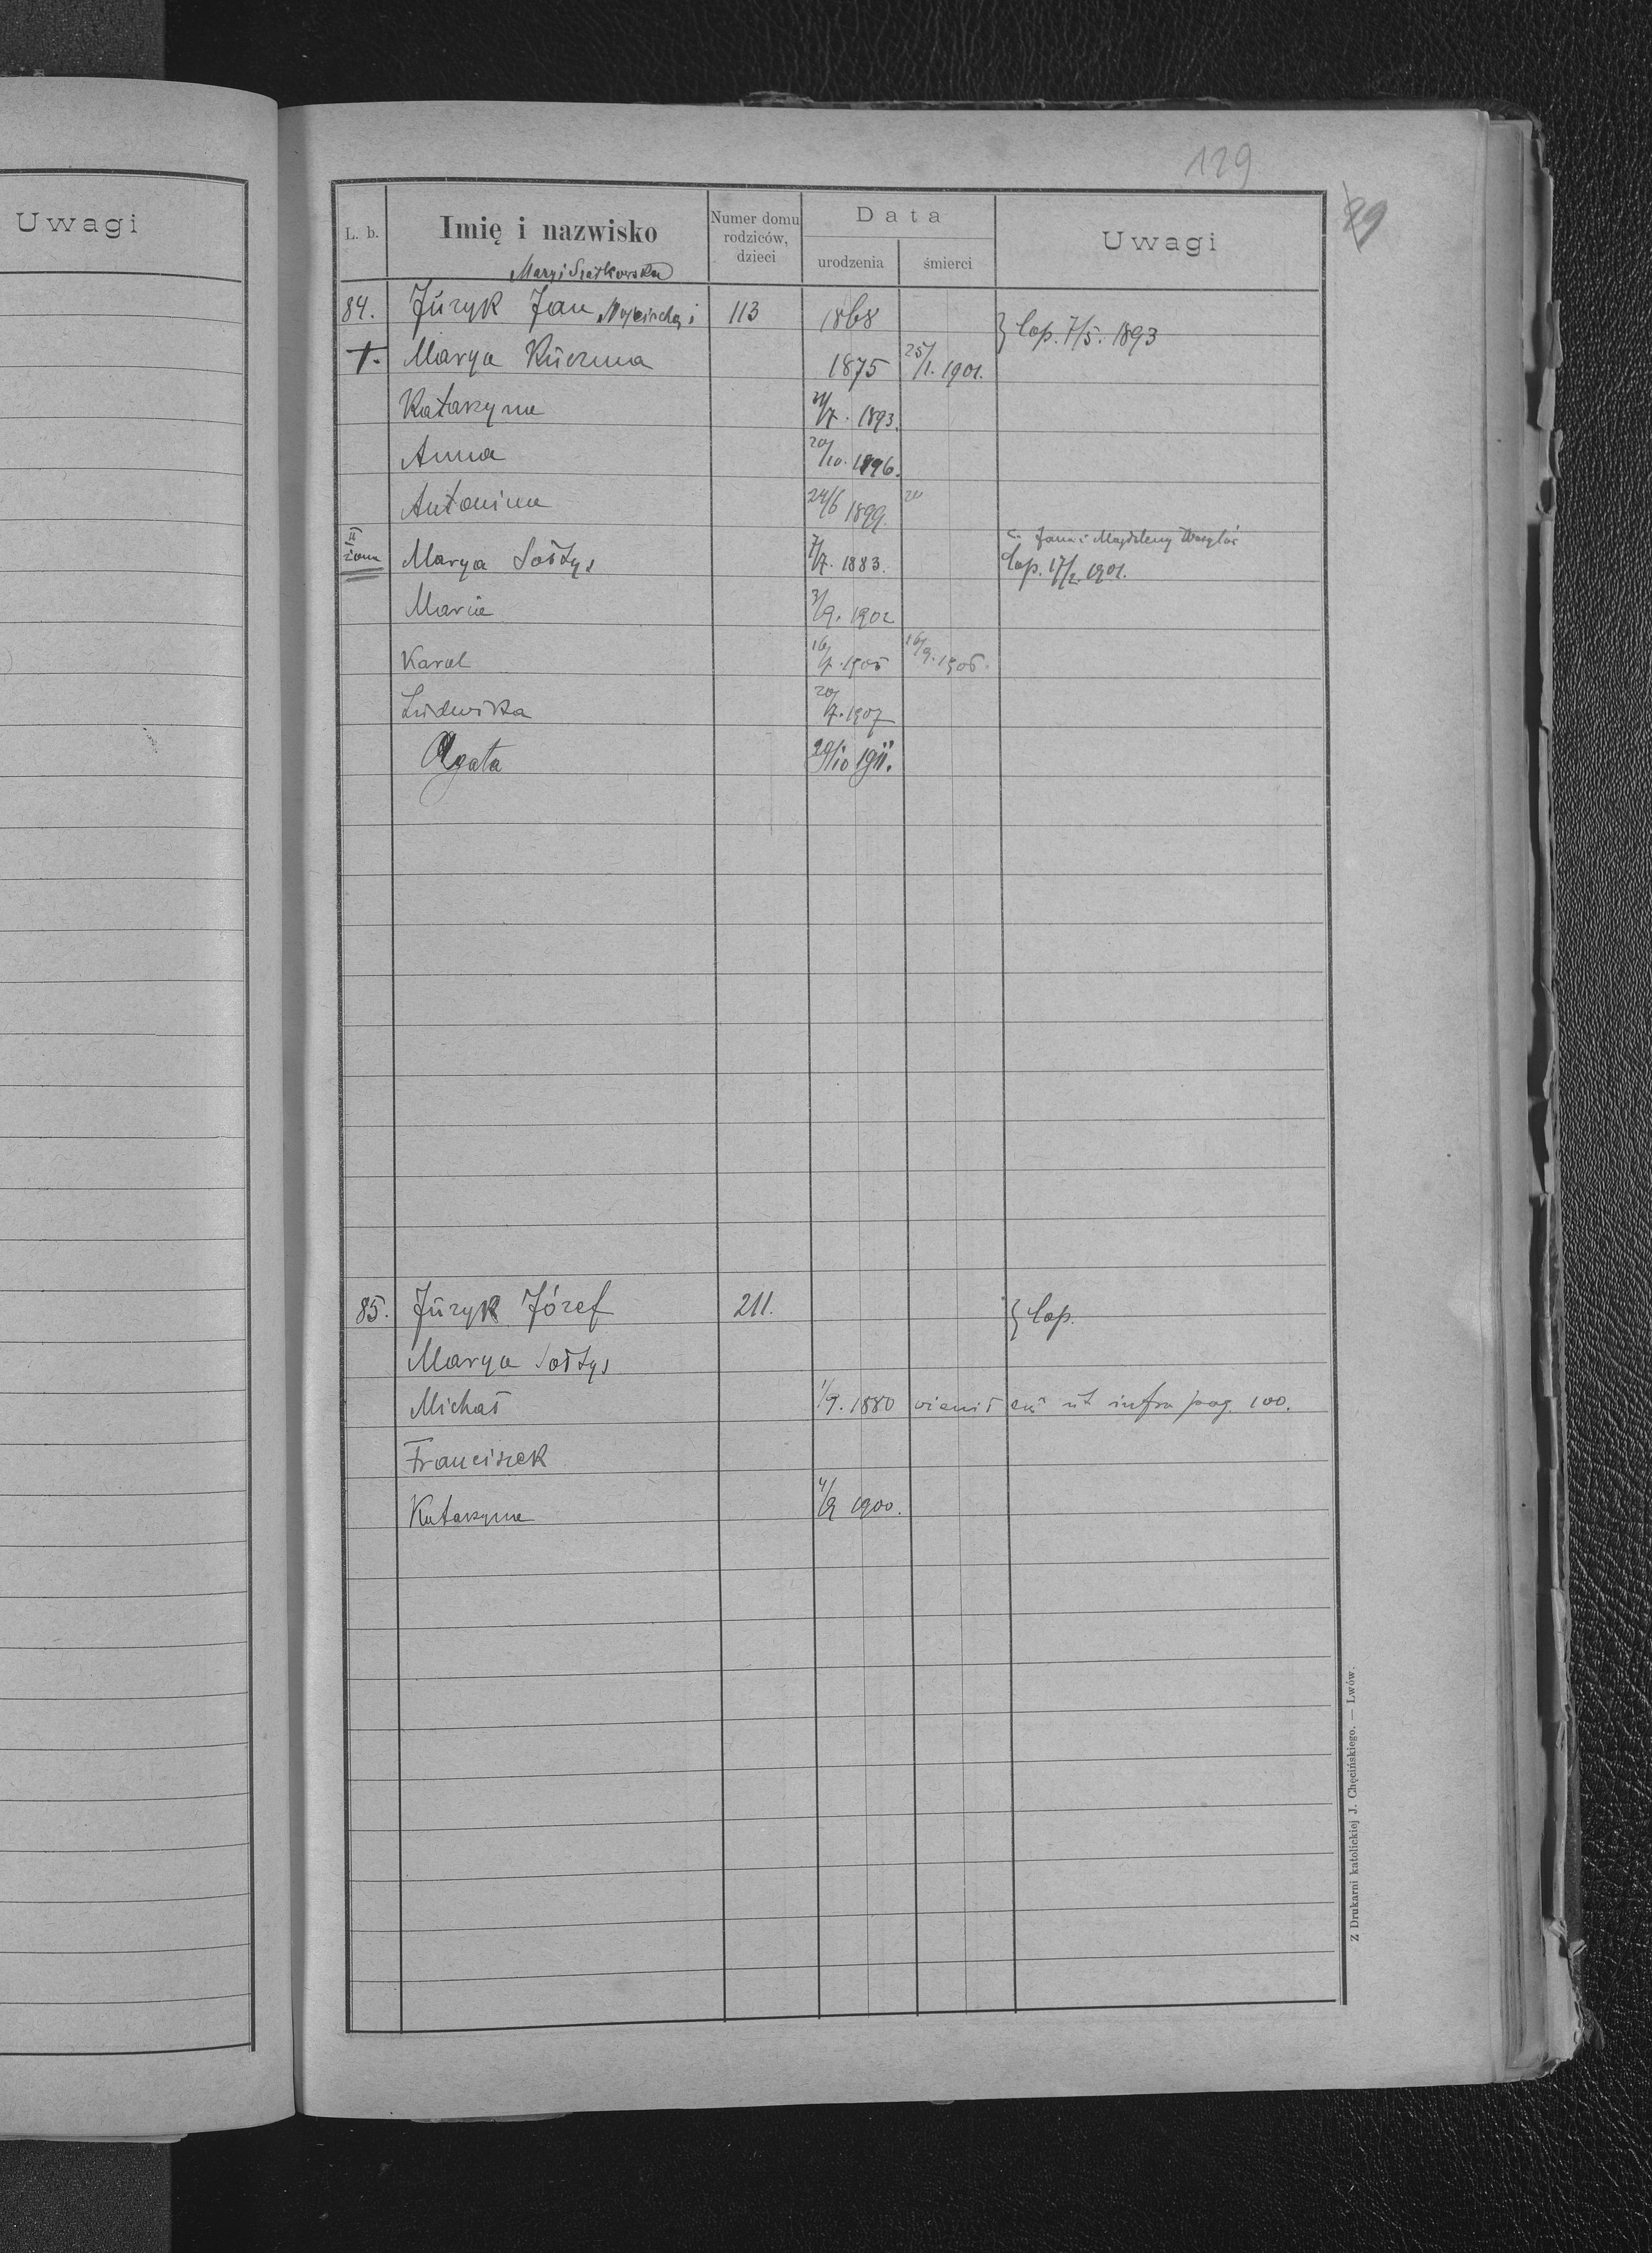 Uwagi
129
29
L. b. Imię i nazwisko Numer domu rodziców, dzieci Data urodzenia śmierci Uwagi
Maryi Siatkowska
84. Júryk Jan Wojciecha i 113 1868 } Cop. 7/5. 1893
†. Marya Kúczma 1875 25/1. 1901.
Katarzyna /7. 1893.
Anna 20/10. 1896.
Antonina 24/6 1899.
II żona Marya Sołtys 7/7. 1883. c. Jana i Magdaleny
Cop. 17/2. 1901.
Maria 3/9. 1902
Karol 16/7. 1905 16/9. 1905.
Ludwika 20/7. 1907
Agata 29/10 1911.
85. Júryk Józef 211. } Cop.
Marya Sołtys
Michał 1/9. 1880 ut infra pag. 100.
Franciszek
Katarzyna 4/9 1900.
Z Drukarni katolickiej J. Chęcińskiego. — Lwów.